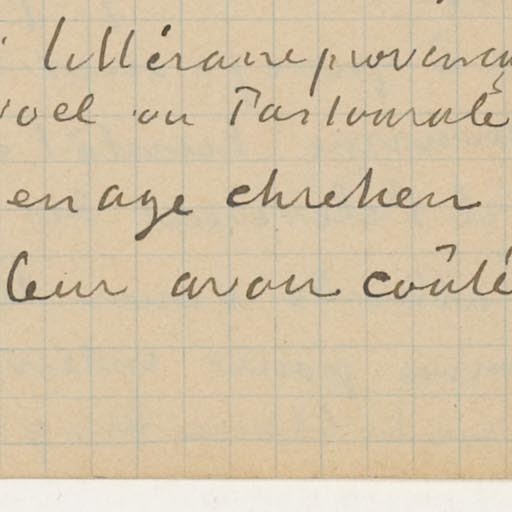 littéraire provenç
oel ou Pastorale
en age chretien
leur avoir coûté